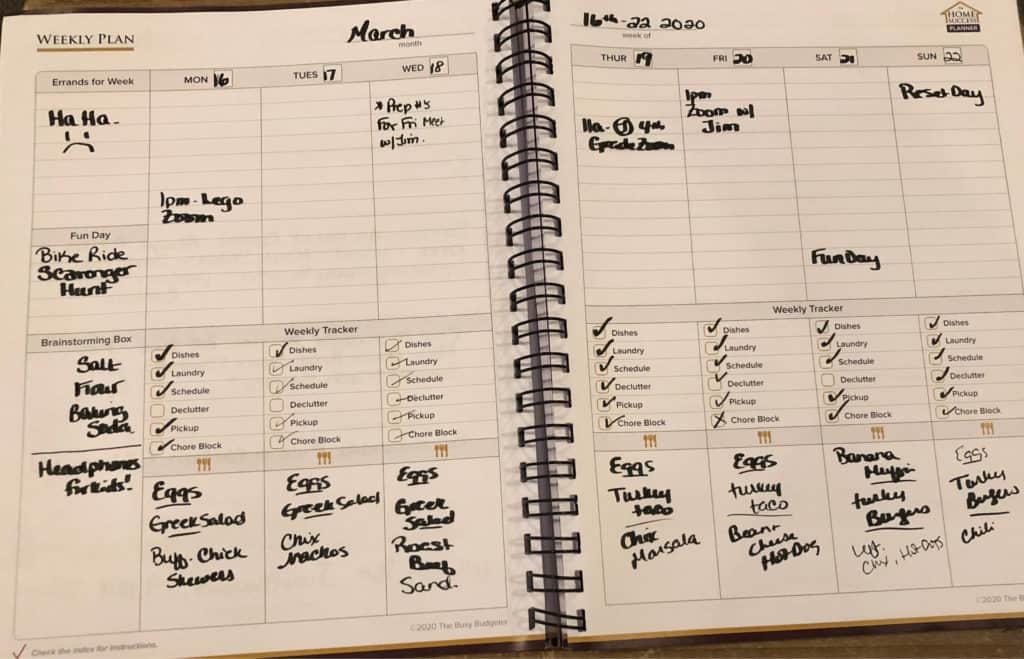 WEEKLY PLAN
March
month
16th-22 2020
week of
THE
HOME
SUCCESS
PLANNER
Errands for Week
MON 16
TUES 17
WED 18
THUR 19
FRI 20
SAT 21
SUN 22
Ha Ha-
1pm - Lego
Zoom
* Prep #s
For Fri Meet
w/Jim.
11a - J 4th
Grade Zoom
1pm
Zoom w/
Jim
Fun Day
Reset Day
Fun Day
Bike Ride
Scavenger
Hunt
Brainstorming Box
Salt
Flour
Baking
Soda
Headphones
for kids!
Weekly Tracker
Dishes
Laundry
Schedule
Declutter
Pickup
Chore Block
Dishes
Laundry
Schedule
Declutter
Pickup
Chore Block
Dishes
Laundry
Schedule
Declutter
Pickup
Chore Block
Weekly Tracker
Dishes
Laundry
Schedule
Declutter
Pickup
Chore Block
Dishes
Laundry
Schedule
Declutter
Pickup
Chore Block
Dishes
Laundry
Schedule
Declutter
Pickup
Chore Block
Dishes
Laundry
Schedule
Declutter
Pickup
Chore Block
Eggs
Greek Salad
Buff. Chick
Skewers
Eggs
Greek Salad
Chix
Nachos
Eggs
Greek
Salad
Roast
Beef
Sand.
Eggs
Turkey
taco
Chix
Marsala
Eggs
turkey
taco
Bean+
Cheese
Hot Dog
Banana
Muffin
turkey
Burgers
Left.
Chix, Hot Dogs
Eggs
Turkey
Burgers
Chili
©2020 The Busy Budgeter
©2020 The B
Check the index for instructions.